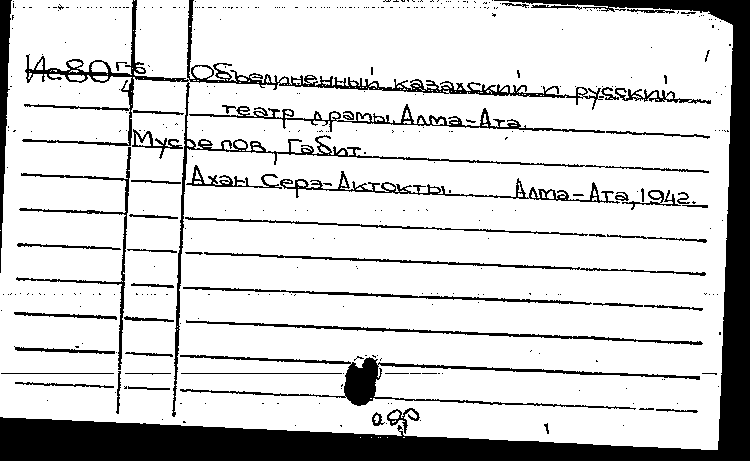 Ис80г-6 Объединенный казахский и русский
4 театр драмы. Алма-Ата.
Мусрепов, Габит.
Ахан Серэ-Актокты. Алма-Ата, 1942.